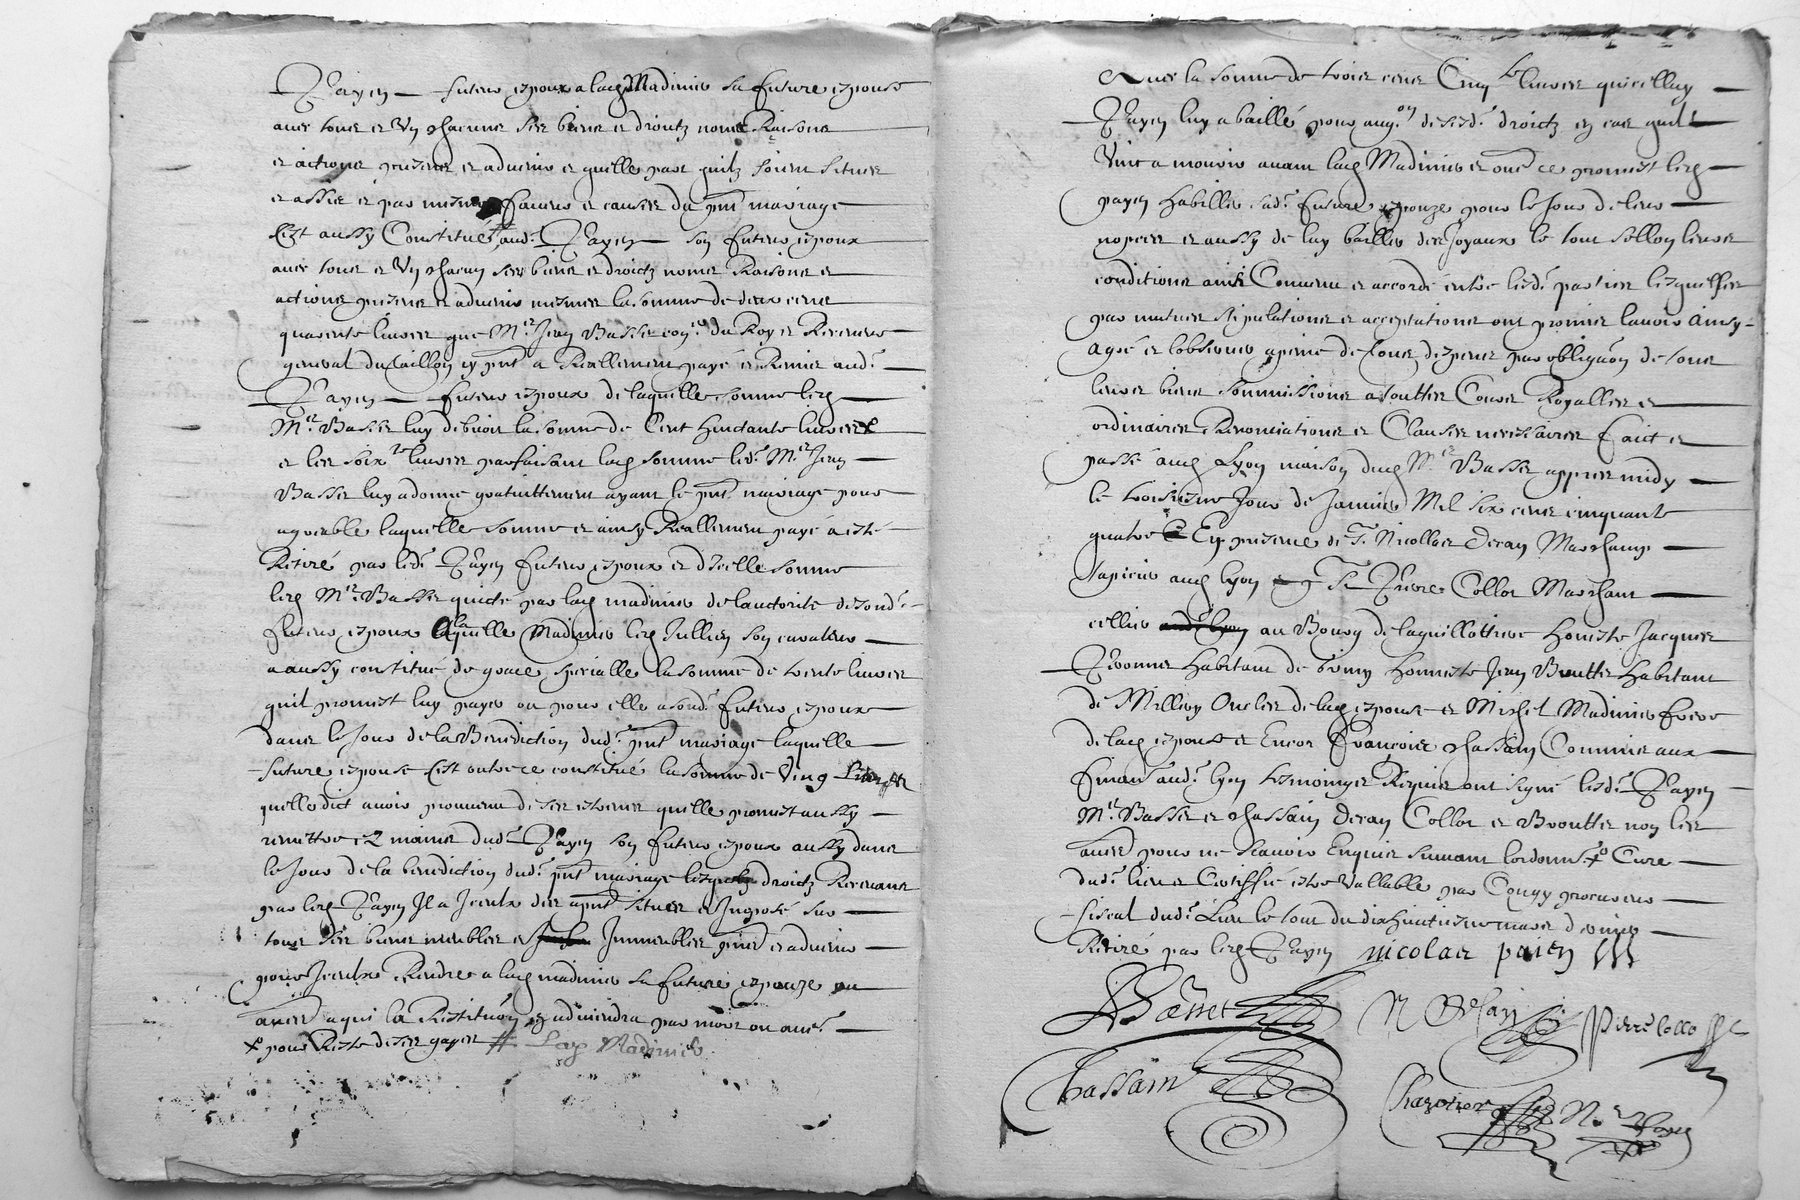 Payen futeur espoux a lad Madinier sa future espouse
avec tous et Un chacuns ses biens et droitz noms Raisons
et actions presens et advenir et quelle part quilz soient situez
et assis et par mesme faveur et cause du pnt mariage
Cest aussy Constitué aud. Payen son futeur espoux
avec tous et Un chacun ses biens et droictz noms Raisons et
actions presens et advenir mesmes la somme de deux cens
quarente livres que Me. Jean Basset du Roy et Receveur
general du taillon cy pnt a Reallement payé et Remis aud.
Payen futeur espoux de laquelle somme led
Me. Basset luy debvoit la somme de Cent huictante livres
et les soixte livres parfaisant lad somme led. Me. Jean
Basset luy a donné gratuittement ayant le pnt. mariage pour
agreable laquelle somme et ainsy Reallement payé a esté
Retiré par led. Payen futeur espoux et dicelle somme
led Me. Basset quicte par lad madinier de lauctorité de sond.
futeur espoux A laquelle Madinier led Jullien son
a aussy constitué de grace specialle la somme de trente livres
quil promest luy payer ou pour elle a sond. futeur espoux
dans le Jour de la Benediction dud. pnt mariage laquelle
future espouse Cest outre ce constitué la somme de Vingt Livres
quelle dict avoir provenu de ses quelle promest aussy
remettre ez mains dud. Payen son futeur espoux aussy dans
le Jour de la benediction dud. pnt mariage lesquelz droictz Recevant
par led Payen Il a Iceulx des apnt situez et Imposé sur
tous ses biens meubles et Immeubles pns et advenir
pour Iceulx Rendre a lad madinier sa future espouze ou
a qui la Restituon en adviendra par mort ou
pour Reste de ses gages # Lad Madinier
Avec la somme de trois cens Cinqte livres quicelluy
Payen luy a baillé pour augon de sesd. droictz en cas quil
Vint a mourir avant lad Madinier et outre ce promest led
payen habiller sad. future espouze pour le Jour de leurs
nopces et aussy de luy bailler des Joyaux le tout sellon leurs
conditions ainsi Convenu et accordé entre lesd. parties lesquelles
par mutues stipulations et acceptations ont promis lavoir Ainsy
agré et lobserver a peine de tous despens par obligaon de tous
leurs biens soubmissions a touttes Cours Royalles et
ordinaires Renonciations et Clauses necessaires faict et
passé aud Lyon maison dud Me. Basset appres midy
le troisiesme Jour de Janvier Mil six cens cinquante
quatre En presence de Sr. Nicollas Deran Marchamp
tapicier aud lyon Sr Pierre Collot Marchant
cellier au Bourg de laguillottiere honeste Jacques
habitant de honneste Jean Broutte habitant
de Millery Oncles de lad espouse et Michel Madinier frere
de lad espouse et Encor François Chassain Commis aux
finans aud. lyon tesmoings Requis ont signé lesd. Payen
Me. Basset et Chassain Deran Collot et Broutte non les
aues pour ne scavoir Enquis suivant lordonnce Cure
dud. lieu et Certiffié estre Vallable par Cougy procureur
fiscal dud. Lieu le tout du dixhuictiesme mars
Retiré par led Payen nicolas paien
Basset N Deran Pierre Collo
Chassain